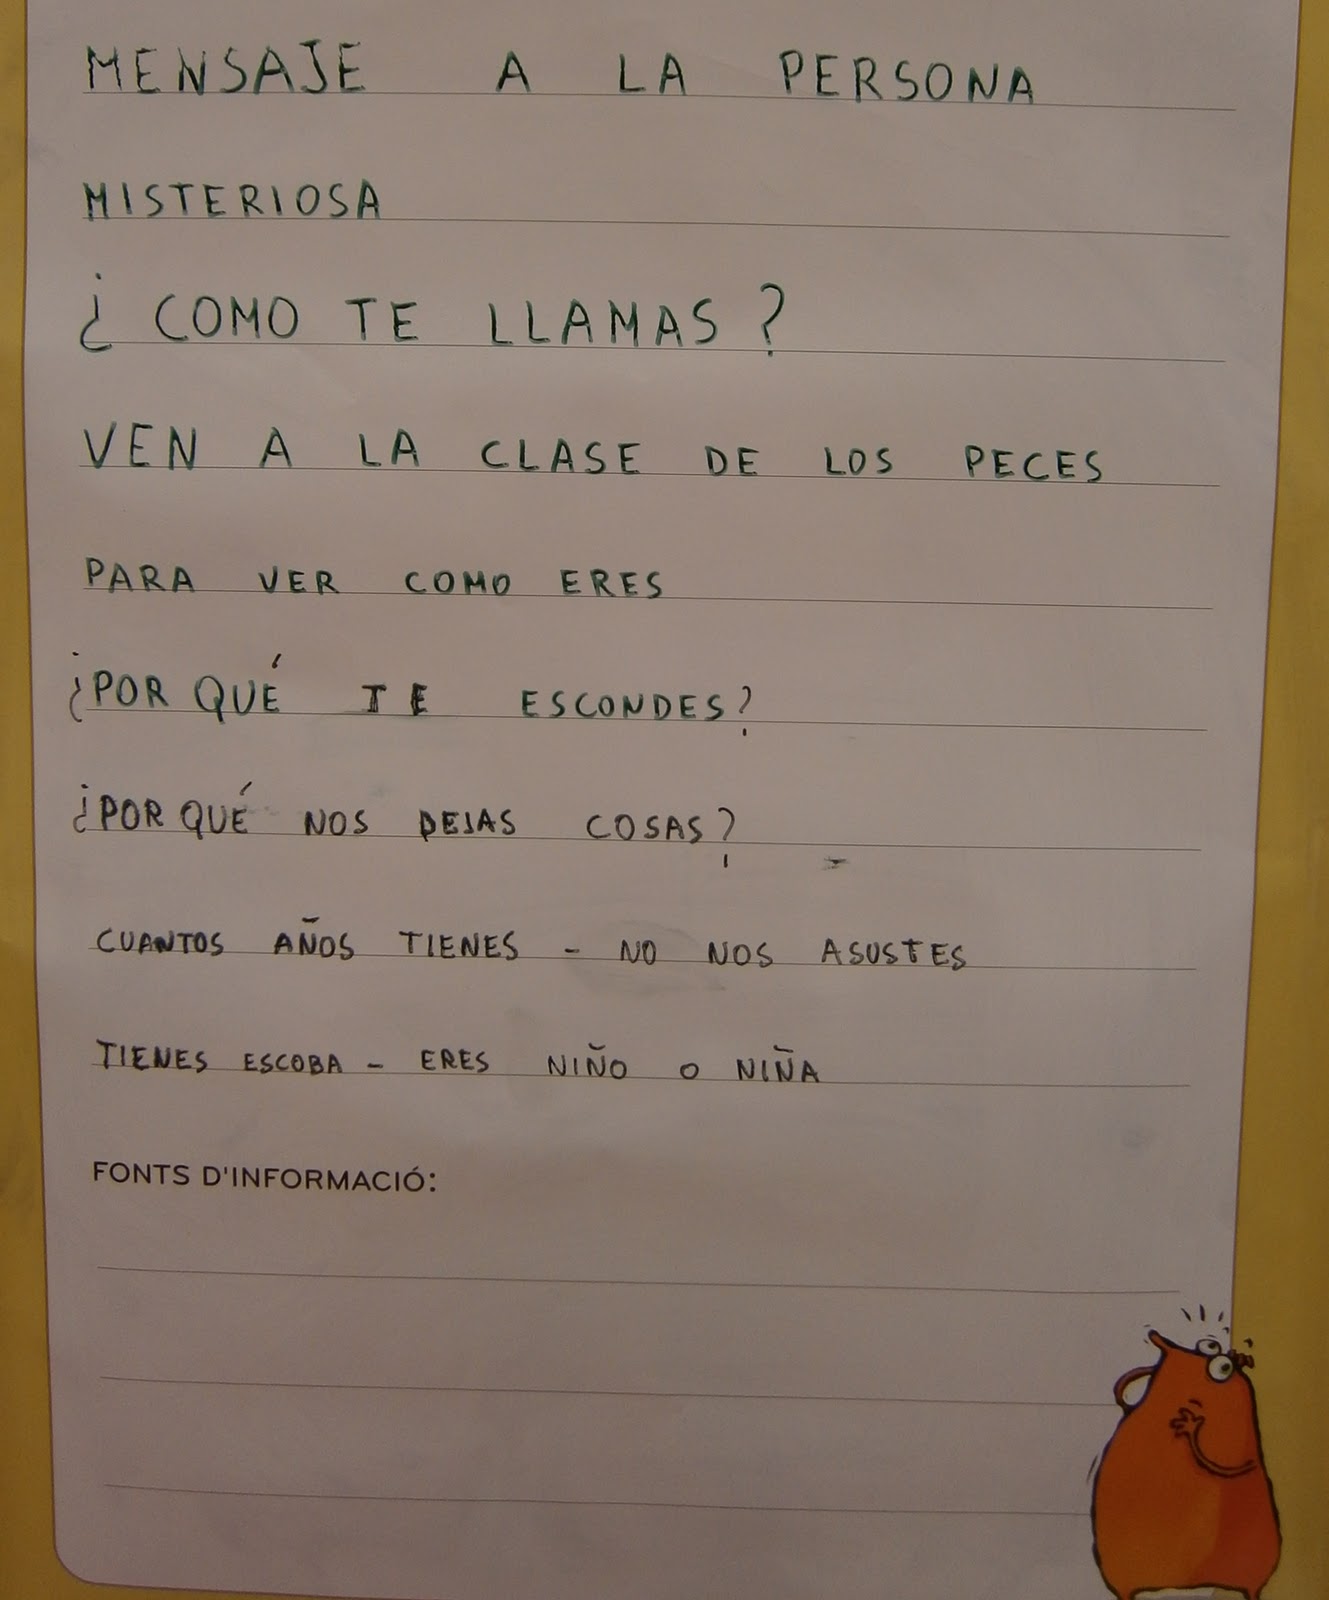 MENSAJE A LA PERSONA
MISTERIOSA
¿ COMO TE LLAMAS ?
VEN A LA CLASE DE LOS PECES
PARA VER COMO ERES
¿POR QUÉ TE ESCONDES?
¿POR QUÉ NOS DEJAS COSAS?
CUANTOS AÑOS TIENES - NO NOS ASUSTES
TIENES ESCOBA - ERES NIÑO O NIÑA
FONTS D'INFORMACIÓ: